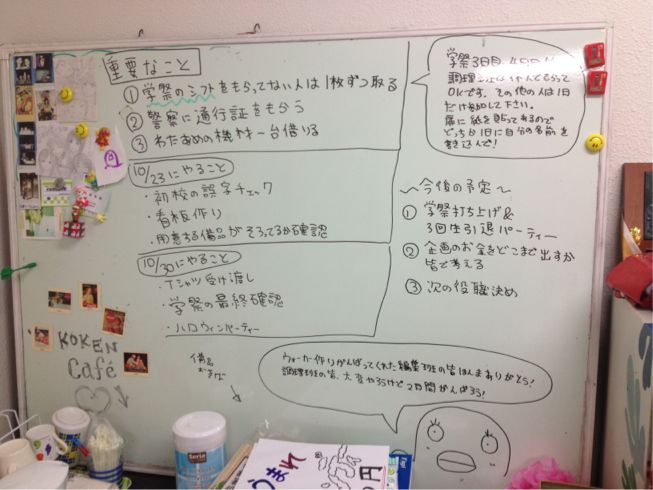 重要なこと
① 学祭のシフトをもらってない人は1枚ずつ取る
② 警察に通行証をもらう
③ わたあめの機材一台借りる
10/23にやること
・初校の誤字チェック
・看板作り
・用意する備品がそろってるか確認
10/30にやること
・Tシャツ受け渡し
・学祭の最終確認
・ハロウィンパーティー
学祭3日目、4日目
調理班は休んでもらって
OKです。その他の人は1日
だけ参加して下さい。
扉に紙を貼ってあるので
どっちか1日に自分の名前を
書き込んで!
〜今後の予定〜
① 学祭打ち上げ&
3回生引退パーティー
② 企画のお金をどこまで出すか
皆で考える
③ 次の役職決め
KOKEN
Café
備品
ウォーカー作りがんばってくれた編集班の皆ほんまありがとう!
調理班の皆、大変やろうけど2日間がんばろう!
Seria
うまれ
の